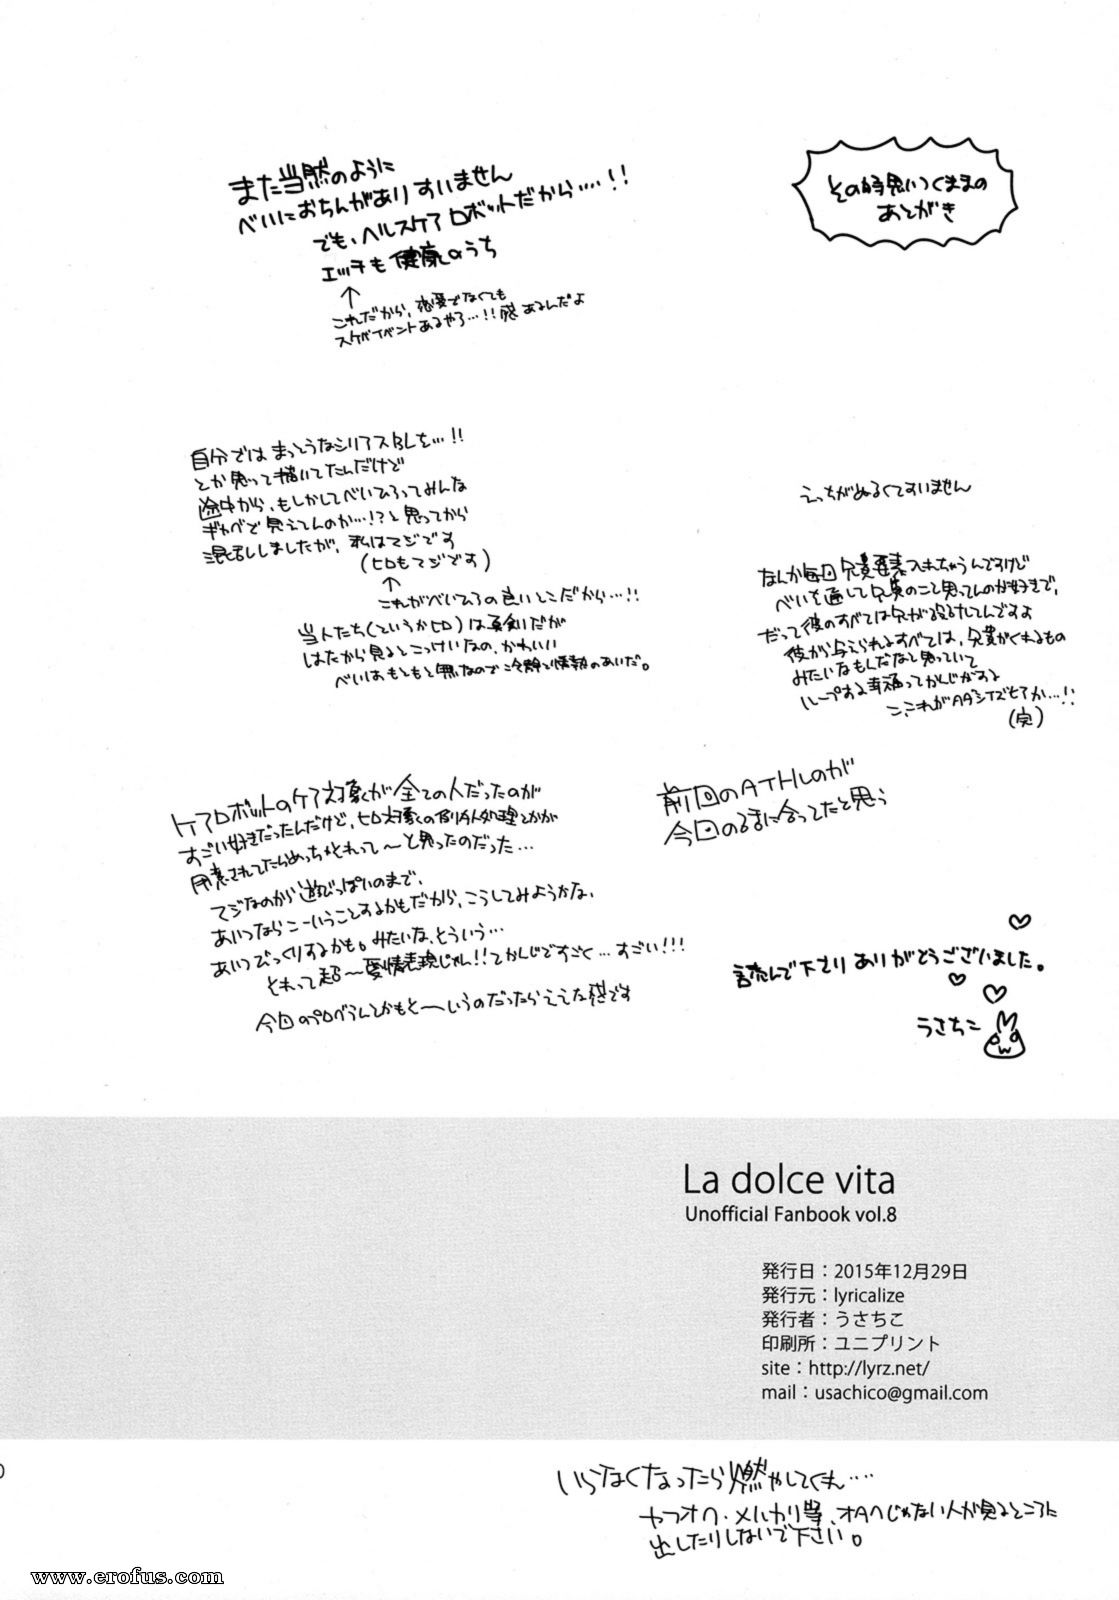 その時思いつくままの
あとがき
また当然のように
べいにおちんがありすいません
でも、ヘルスケアロボットだから‥‥!!
エッチも健康のうち
↑
これだから、恋愛でなくても
スケベイベントあるやろ…!!感あるんだよ
自分ではまっとうなシリアスBLを…!!
とか思って描いてたんだけど
途中から、もしかしてべいひろってみんな
ギャグで見えてんのか…!?と思ってから
混乱ししましたが、私はマジです
(ヒロもマジです)
↑
これがべいひろの良いとこだから…!!
当人たち(というかヒロ)は真剣だが
はたから見るとこっけいなの、かわいい
べいはもともと無なので冷静と情熱のあいだ。
えっちがぬるくてすいません
なんか毎回兄貴要素入れちゃうんですけど
べいを通して兄貴のこと思ってんのが好きで、
だって彼のすべては兄が
彼が与えられるすべては、兄貴がくれるもの
みたいなもんだなと思っていて
ループする幸福ってかんじがする
こ、これが
(完)
ケアロボットのケア対象が全ての人だったのが
すごい好きだったんだけど、ヒロ対象の例外処理とかが
用意されてたらめっちゃそれって〜と思ったのだった…
マジなのから遊びっぽいのまで、
あいつならこーいうことするかもだから、こうしてみようかな、
あいつびっくりするかも。みたいな、そういう…
それって超〜愛情表現じゃん!!てかんじですごく…すごい!!!
今回のプログラムとかもそ〜いうのだったらええな感です
前回のATHLのが
今回のるまに合ってたと思う
読んで下さりありがとうございました。
うさちこ
La dolce vita
Unofficial Fanbook vol.8
発行日：2015年12月29日
発行元：lyricalize
発行者：うさちこ
印刷所：ユニプリント
site：http://lyrz.net/
mail：usachico@gmail.com
いらなくなったら燃やしてくれ‥‥
ヤフオク・メルカリ等、オタクじゃない人が見るところに
出したりしないで下さい。
www.erofus.com